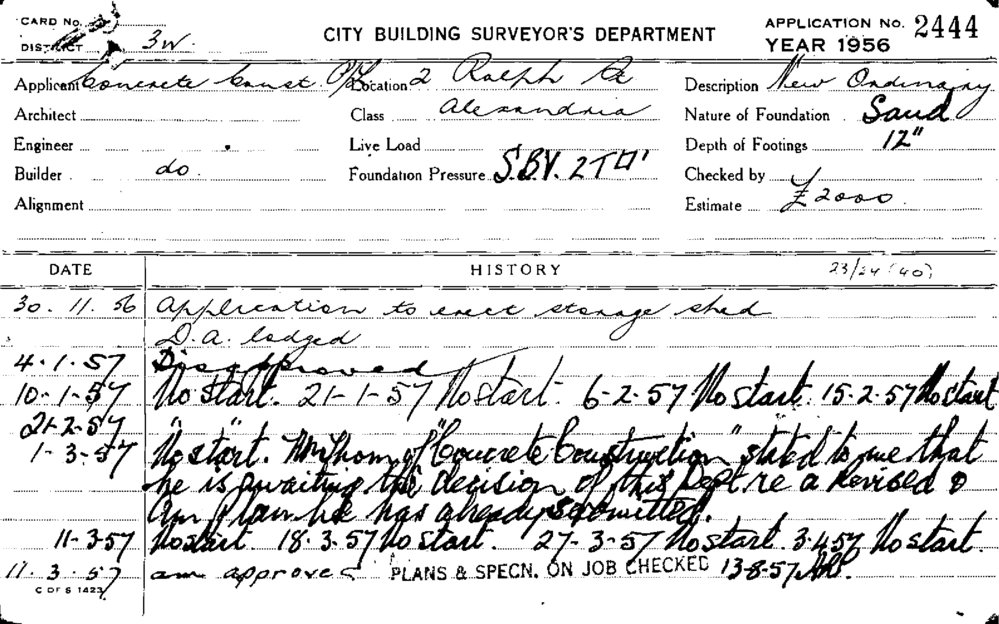 CARD No.
DISTRICT 3W.
CITY BUILDING SURVEYOR'S DEPARTMENT
APPLICATION No. 2444
YEAR 1956
Applicant Concrete Const. P/L Location 2 Ralph St Description New Ordinary
Architect Class Alexandria Nature of Foundation Sand
Engineer Live Load Depth of Footings 12"
Builder do. Foundation Pressure S.B.V. 2T□' Checked by
Alignment Estimate £2000
DATE HISTORY 23/24 (40)
30. 11. 56 Application to erect storage shed
D.A. lodged
4.1.57 Disapproved
10-1-57 No start. 21-1-57 No start. 6-2-57 No start. 15-2-57 No start
21-2-57 " "
1-3-57 No start. Mr Thom of "Concrete Construction" stated to me that
he is awaiting the decision of this Dept. re a Revised &
Am plan he has already submitted.
11-3-57 No start. 18.3.57 No start. 27-3-57 No start. 3.4.57 No start.
11.3.57 am approved PLANS & SPECN. ON JOB CHECKED 13-8-57
C OF S 1423